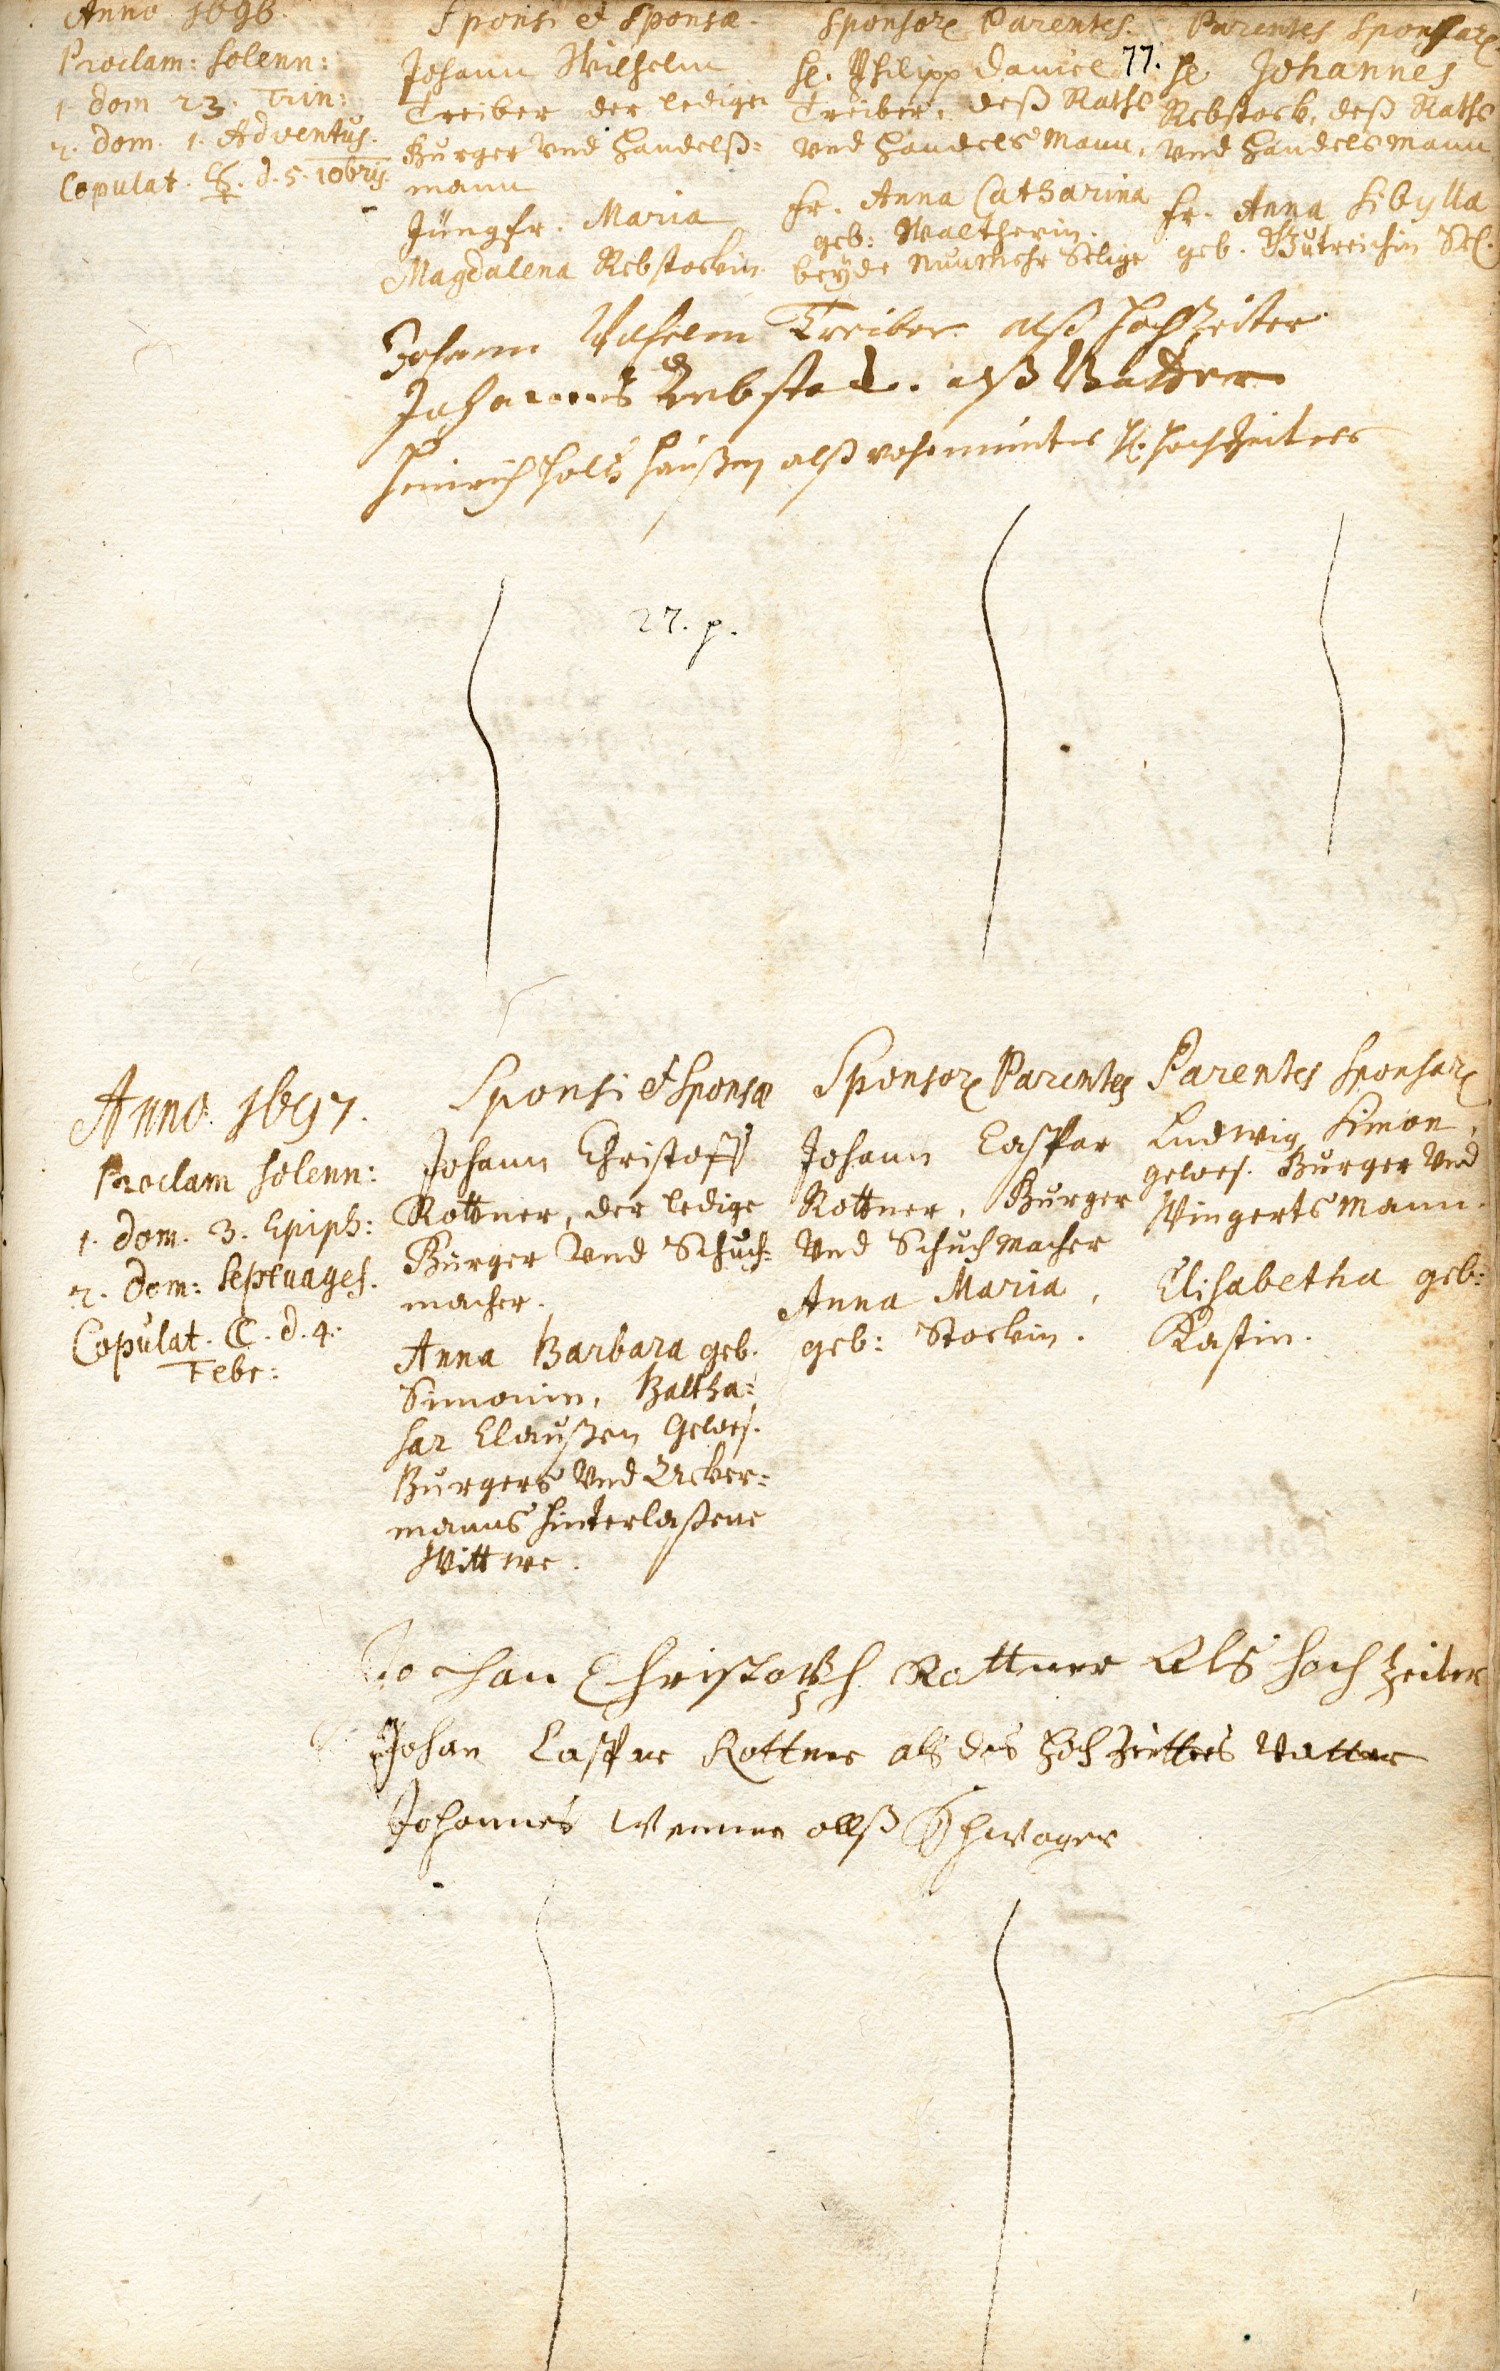 77.
Anno 1696.
Proclam: solenn:
1. dom 23. Trin:
2. dom. 1. Adventus.
Copulat. d. 5. 10bris.
Sponsi et Sponsæ.
Johann Wilhelm
Treiber der ledige
Burger und Handelß-
mann
Jungfr. Maria
Magdalena Rebstockin
Sponsor. Parentes.
H. Philipp Daniel
Treiber, deß Raths
und Handels Mann,
Fr. Anna Catharina
geb: Waltherin.
beyde nunmehr Selige
Parentes Sponsar.
H. Johannes
Rebstock, deß Raths
und Handelsmann
Fr. Anna Sibylla
geb. Gutreichin Sel.
Johann Wilhelm Treiber alß Hochzeiter
Johannes Rebstock. alß Vatter
Heinrich Holtzhaußen alß H. Hochzeiters
27. p.
Anno. 1697.
Proclam solenn:
1. dom. 3. Epiph:
2. dom: Septuages.
Copulat. C. d. 4.
Febr:
Sponsi et Sponsæ
Johann Christoff
Rottner, der ledige
Burger Und Schuch-
macher.
Anna Barbara geb.
Simonin, Baltha=
sar Claußen Gewes.
Burgers Und Acker=
manns hinterlaßene
Wittwe.
Sponsor. Parentes
Johann Caspar
Rottner, Burger
Und Schuchmacher
Anna Maria,
geb: Stockin.
Parentes Sponsar.
Ludwig Simon,
gewes. Burger Und
Wingerts Mann.
Elisabetha geb:
Kastin.
Jochan Christoph Rottner Als Hoch Zeiter
Johan Caspar Rottner als des Hochzeitters Vatter
Johannes Wenner allß Schwager